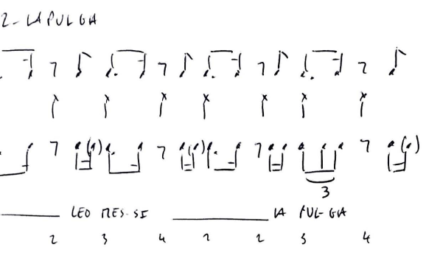 2- LA PULGA
3
LEO MES-SI LA PUL-GA
2 3 4 1 2 3 4